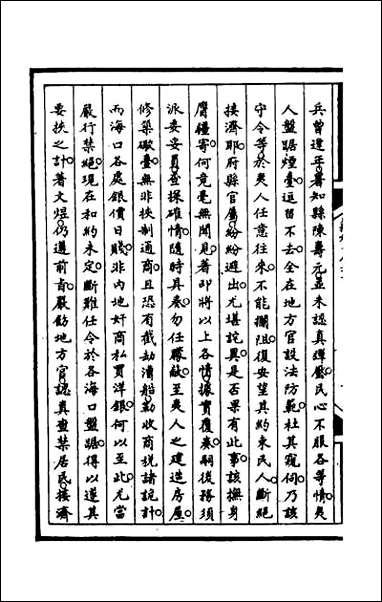 兵曾逢年署知縣陳壽元並未認真彈壓民心不服各等情夷
人盤踞煙臺逗留不去全在地方官設法防範杜其窺伺乃該
守令等於夷人任意往來不能攔阻復安望其約束民人斷絕
接濟耶府縣官屬紛紛避出尤堪詫異是否果有此事該撫身
膺疆寄何竟毫無聞見著即將以上各情據實覆奏嗣後務須
派委妥員登採確情隨時具奏勿任矇蔽至夷人之建造房屋
修築礮臺無非挾制通商且恐有截劫漕船勒收商稅諸詭計
而海口各處銀價日賤非內地奸商私買洋銀何以至此尤當
嚴行禁絕現在和約未定斷難任令於各海口盤踞得以遂其
要挾之計著文煜仍遵前旨嚴飭地方官認真查禁居民接濟